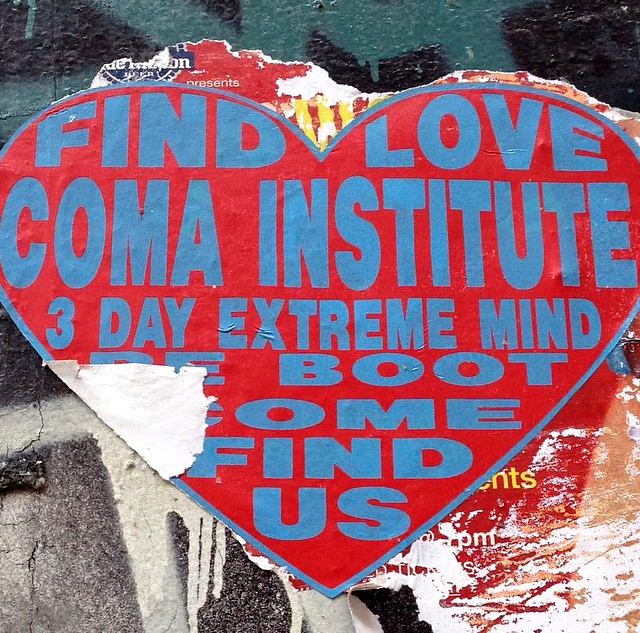 presents
FIND LOVE
COMA INSTITUTE
3 DAY EXTREME MIND
RE BOOT
COME
FIND
US